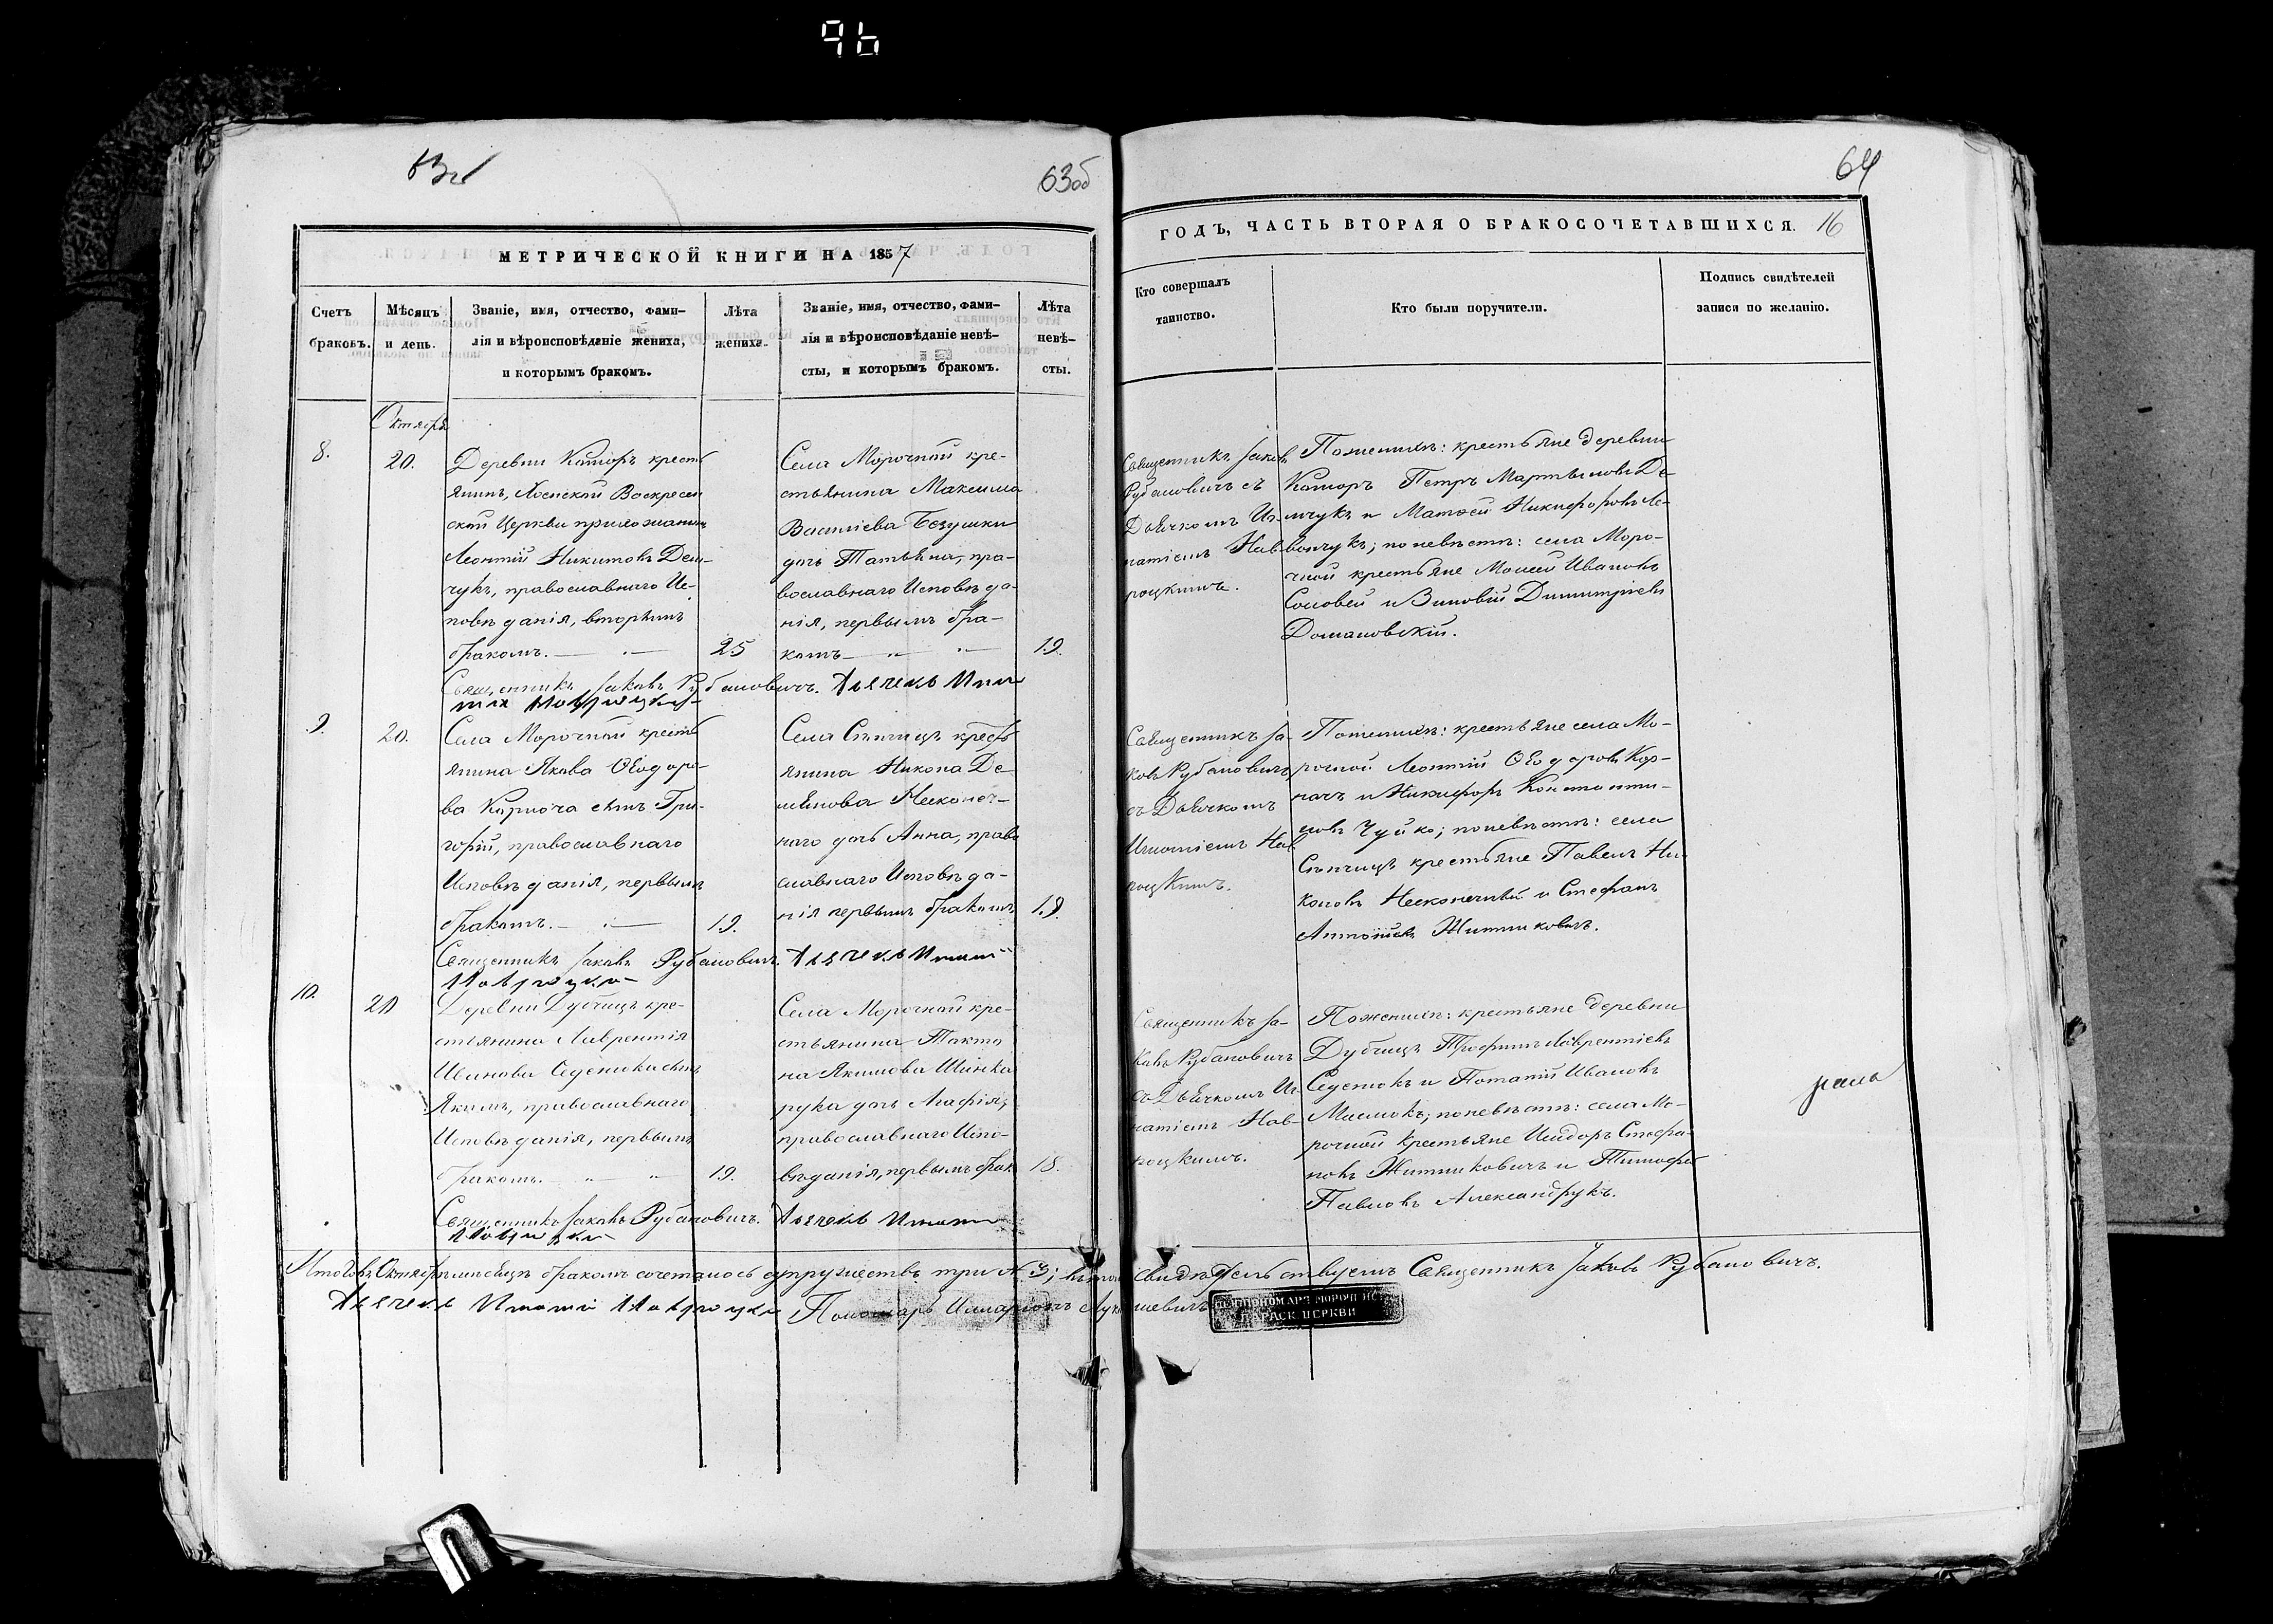 96
63об
64
МЕТРИЧЕСКОЙ КНИГИ НА 1857
ГОДЪ, ЧАСТЬ ВТОРАЯ О БРАКОСОЧЕТАВШИХСЯ. 16
Счетъ
браковъ.
Мѣсяцъ
и день.
Званіе, имя, отчество, фами-
лія и вѣроисповѣданіе жениха,
и которымъ бракомъ.
Лѣта
жениха.
Званіе, имя, отчество, фами-
лія и вѣроисповѣданіе невѣ-
сты, и которымъ бракомъ.
Лѣта
невѣ-
сты.
Кто совершалъ
таинство.
Кто были поручители.
Подпись свидѣтелей
записи по желанію.
Октября
8.
20.
Деревни Коморъ кресть
янинъ, Воскресен
ской Церкви прихожанинъ
Леонтій Никитовъ Дем-
чукъ, православнаго Ис-
повѣданія, вторымъ
бракомъ.
25
Села Морочной кре-
стьянина Максима
Василіева Безушки
дочь Татьяна, пра-
вославнаго Исповѣда-
нія, первымъ бра-
комъ
19.
Священникъ Іаковъ
Рубановичъ съ
Дьячкомъ Иг-
натіемъ Нав
роцкимъ.
По женихѣ: крестьяне деревни
Коморъ Петръ Мартыновъ Де-
мчукъ и Матѳей Никифоровъ Ле-
вончукъ; по невѣстѣ: села Моро-
чной крестьяне Моисей Ивановъ
Соловей и Зиновій Димитріевъ
Домановскій.
Священникъ Іаковъ Рубановичъ. Дьячекъ Игна
тій Навроцкій
9.
20.
Села Морочной кресть
янина Якова Ѳеодоро-
ва Корнача сынъ Гри-
горій, православнаго
Исповѣданія, первымъ
бракомъ.
19.
Села Сѣнчицъ кресть
янина Никона Де-
мьянова Несконеч-
наго дочь Анна, право
славнаго Исповѣда-
нія первымъ бракомъ
18.
Священникъ Іа-
ковъ Рубановичъ
съ Дьячкомъ
Игнатіемъ Нав
роцкимъ.
По женихѣ: крестьяне села Мо-
рочной Леонтій Ѳеодоровъ Кор-
начъ и Никифоръ Константи-
новъ Чуйко; по невѣстѣ: села
Сѣнчицъ крестьяне Павелъ Ни-
коновъ Несконечный и Стефанъ
Антоніевъ Житниковичъ.
Священникъ Іаковъ Рубановичъ. Дьячекъ Игнатій
Навроцкій
10.
20
Деревни Дубчицъ кре-
стьянина Лаврентія
Иванова Седенюка сынъ
Якимъ, православнаго
Исповѣданія, первымъ
бракомъ.
19.
Села Морочной кре-
стьянина Такто
на Якимова Шинка
рука дочь Агафія,
православнаго Испо-
вѣданія, первымъ брак
18.
Священникъ Іа-
ковъ Рубановичъ
съ Дьячкомъ Иг-
натіемъ Нав-
роцкимъ.
По женихѣ: крестьяне деревни
Дубчицъ Трофимъ Лаврентіевъ
Седенюкъ и Потапій Ивановъ
Мислюкъ; по невѣстѣ: села Мо-
рочной крестьяне Исидоръ Стефа-
новъ Житниковичъ и Тимофей
Павловъ Александрукъ.
Священникъ Іаковъ Рубановичъ. Дьячекъ Игнатій
Навроцкій
Итого въ Октябрѣ мѣсяцѣ бракомъ сочеталось супружествъ три № 3; въ томъ свидѣтельствуемъ Священникъ Іаковъ Рубановичъ.
Дьячекъ Игнатій Навроцкій Пономарь Илларіонъ
ПОНОМАРЯ МОРОЧ
ПАРАСК ЦЕРКВИ